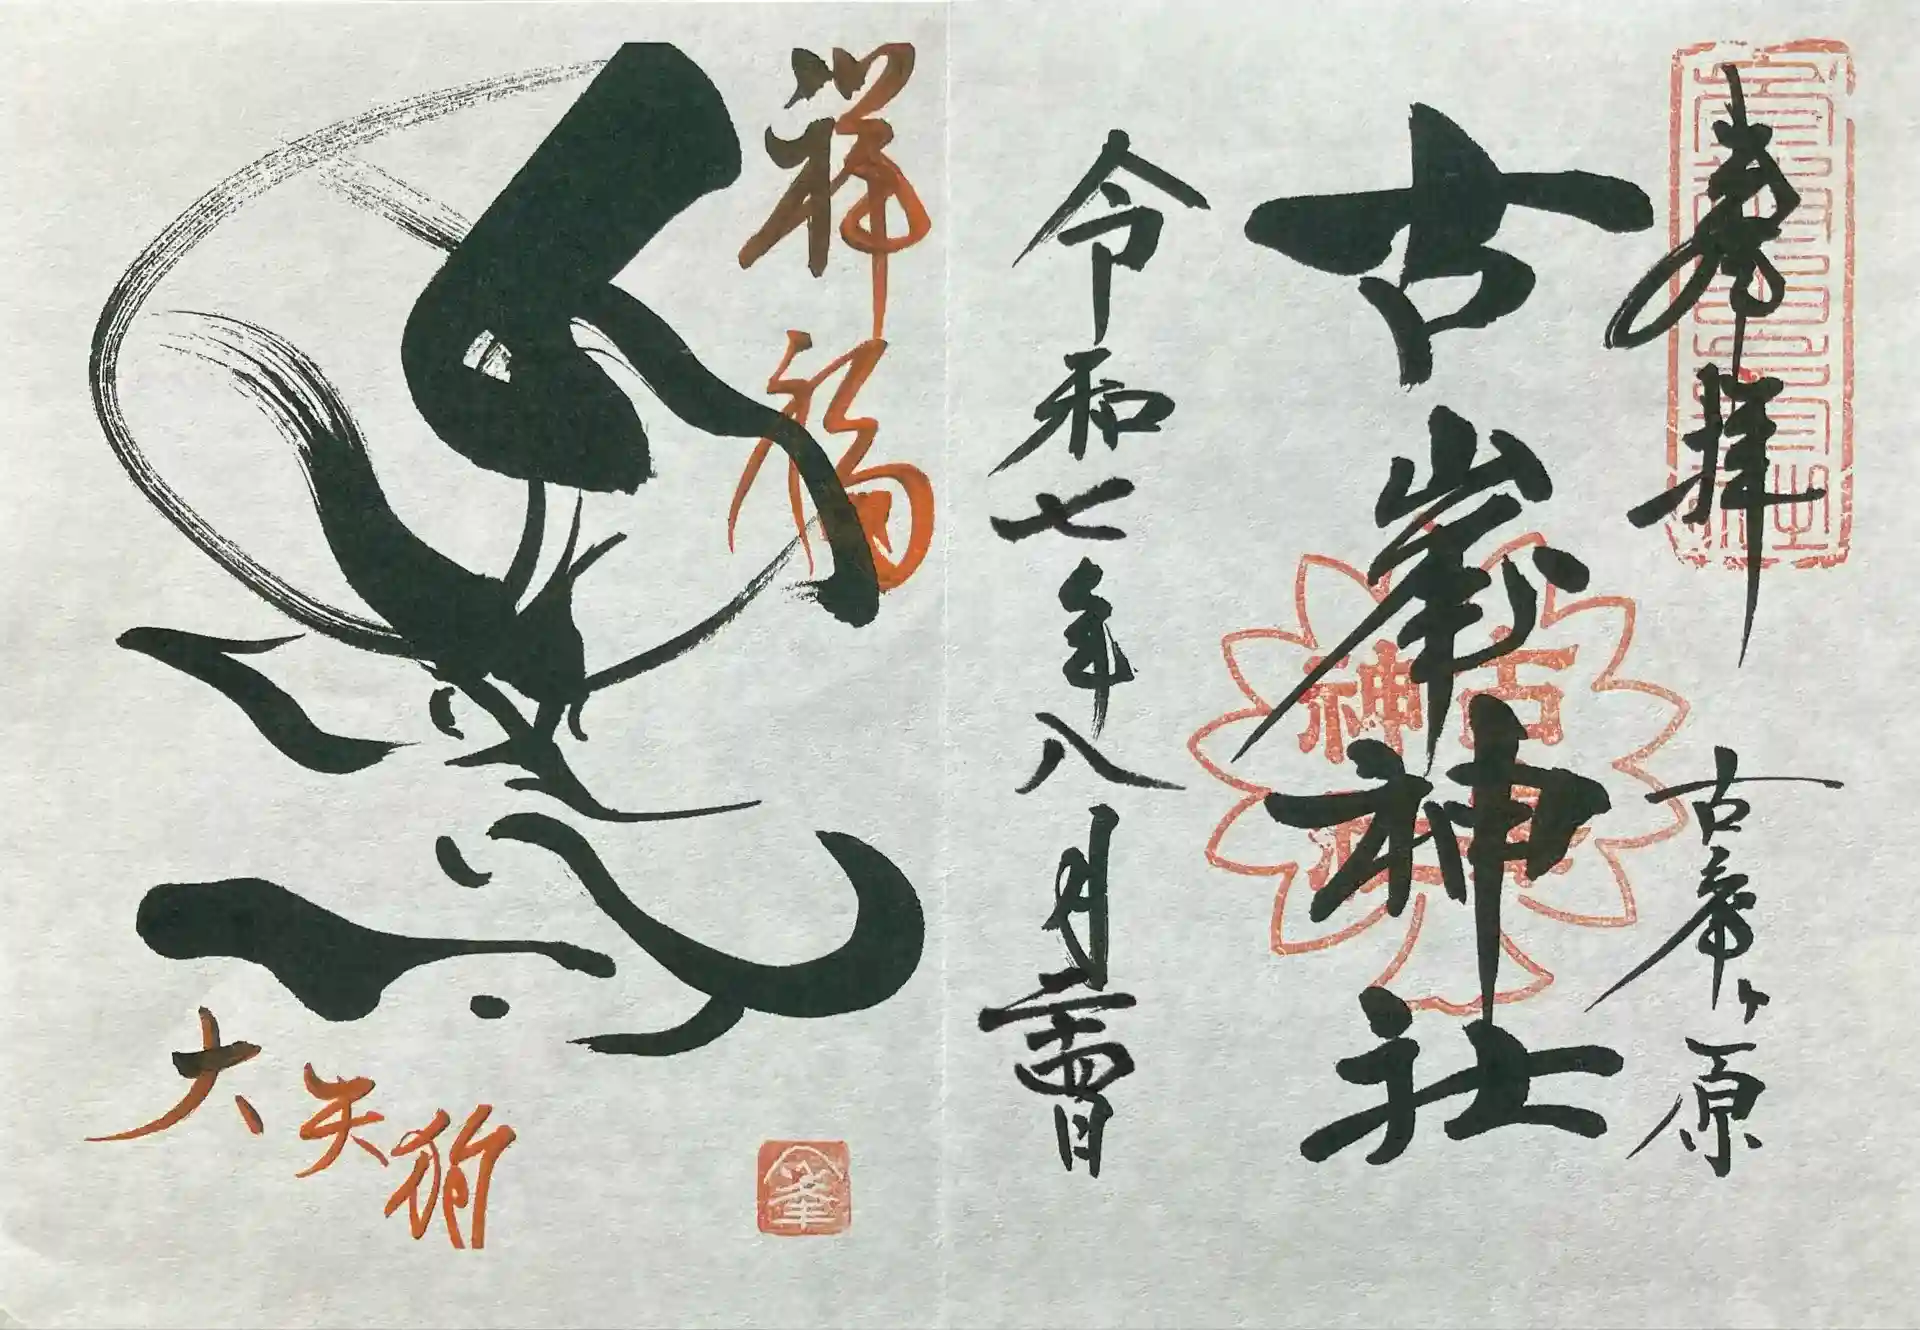 奉拝
古峯ヶ原
古峯神社
古峯神社
令和七年八月二十四日
祥福
大天狗
峯